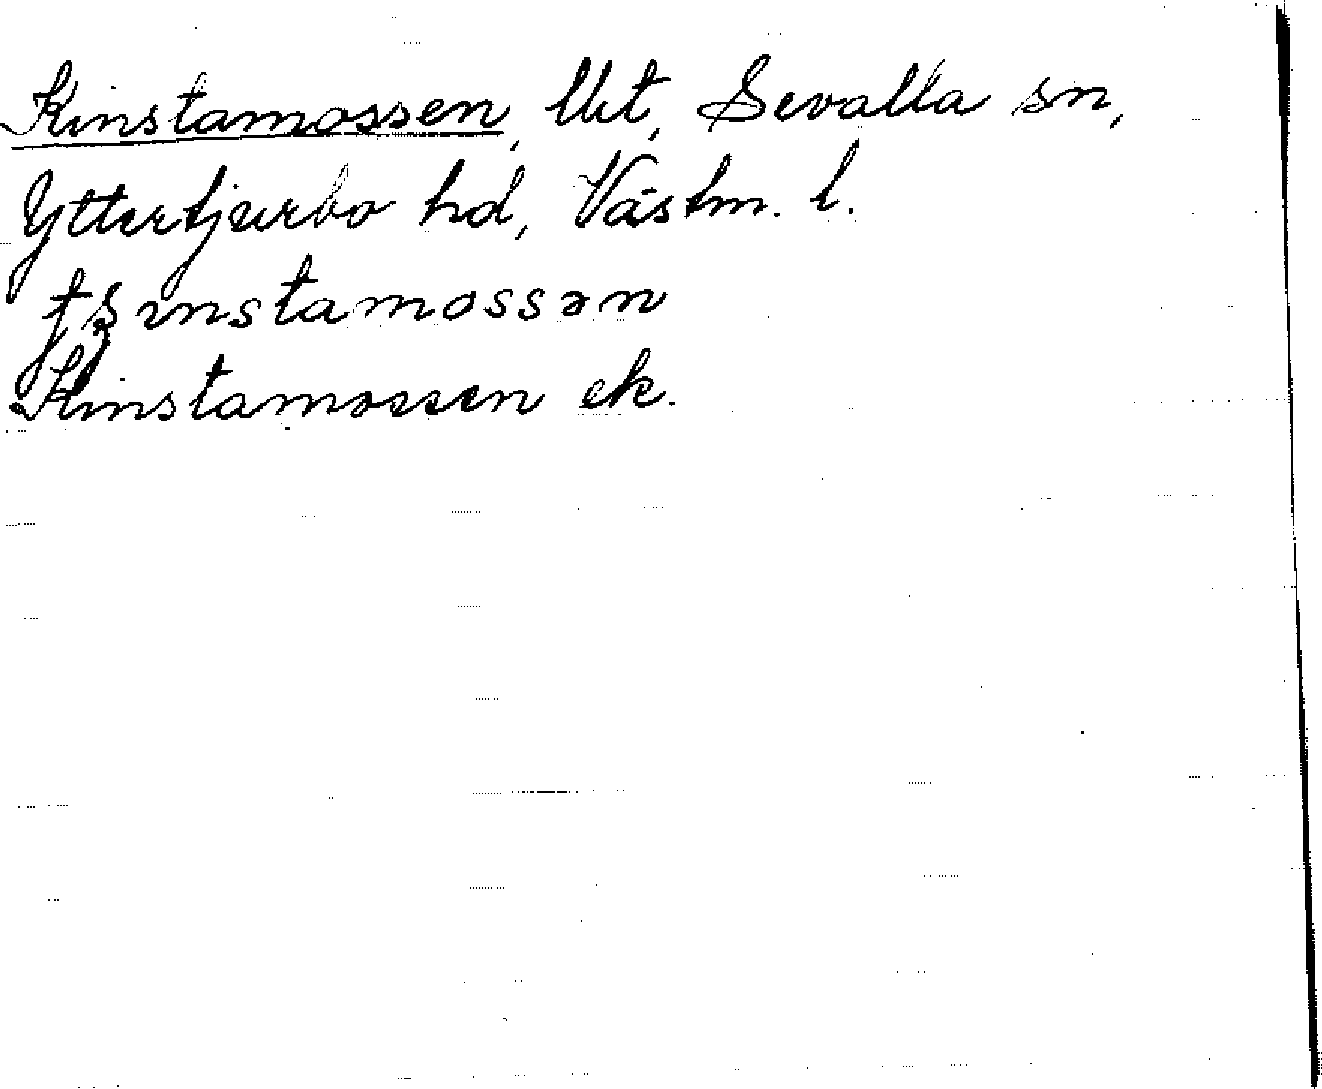 Kinstamossen, Ukt, Sevalla sn,
Yttertjurbo hd, Västm. l.
tʂinstamossən
Kinstamossen ek.